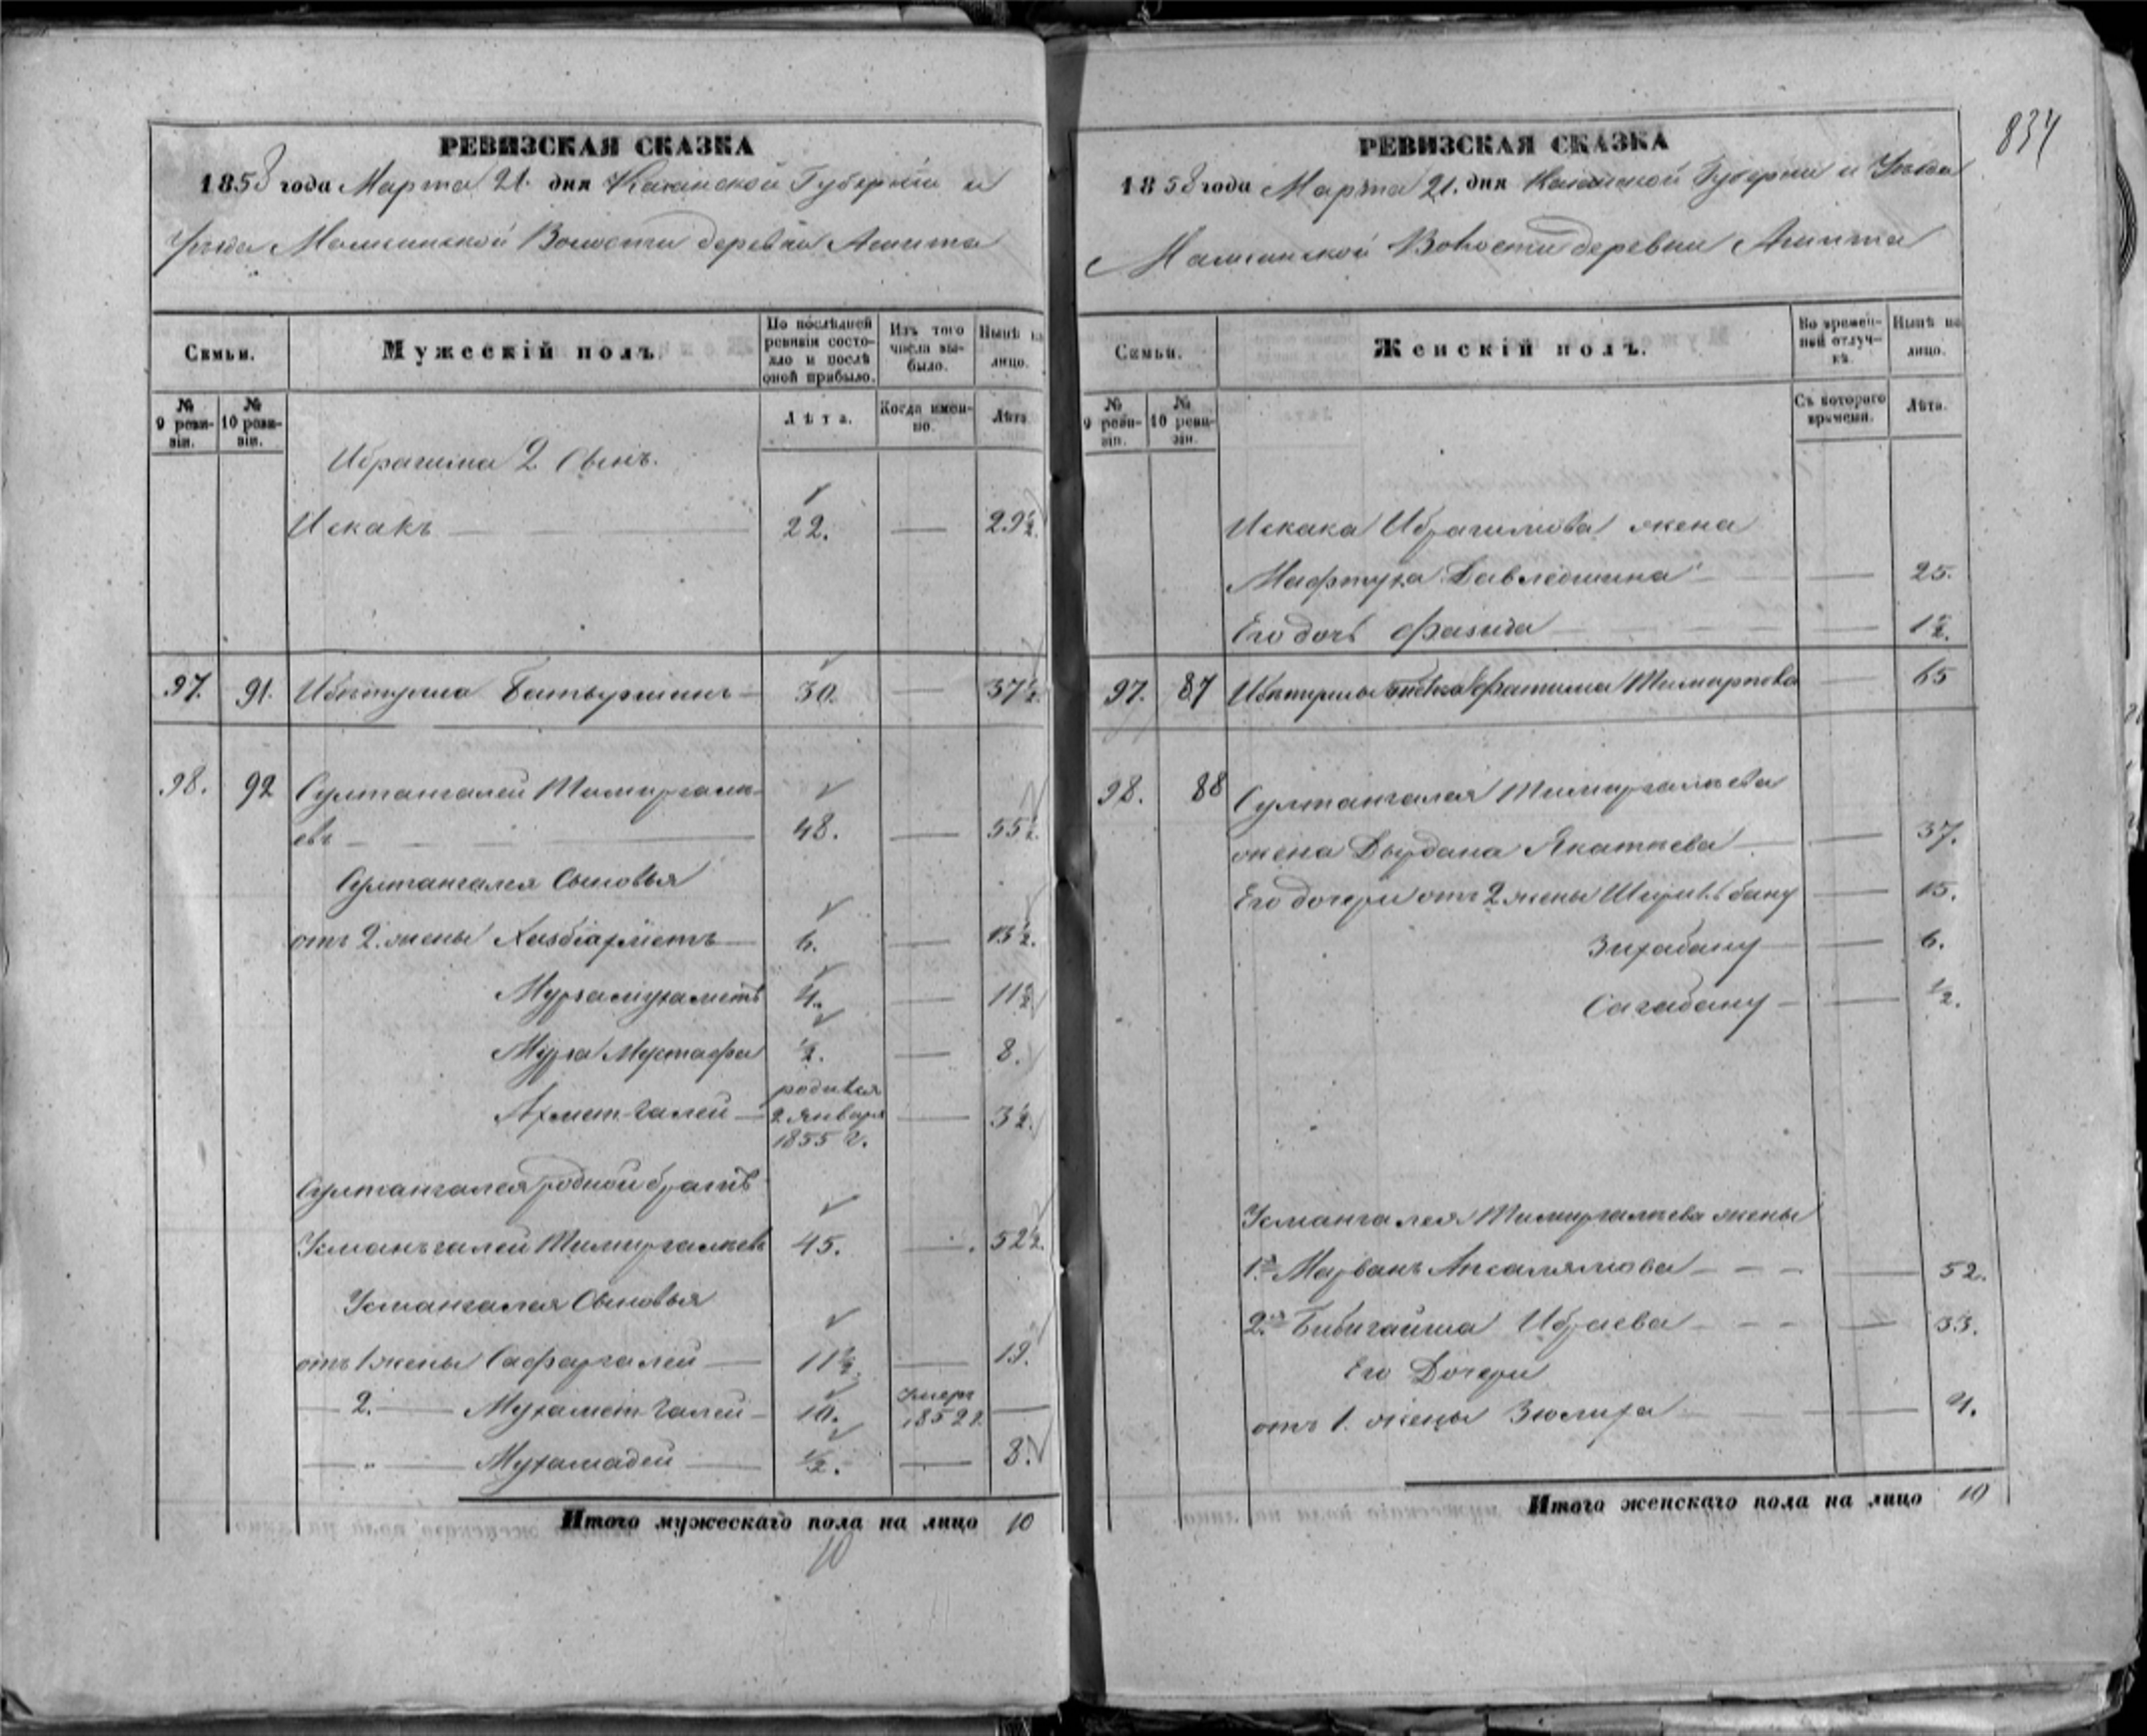 РЕВИЗСКАЯ СКАЗКА
1858 года Марта 21. дня Казанской Губерніи и
Уѣзда Мамсинской Волости деревни Ашита
Семьи.
Мужескій полъ.
По послѣдней ревизіи состояло и послѣ оной прибыло.
Изъ того числа выбыло.
Нынѣ на лицо.
№ 9 ревизіи.
№ 10 ревизіи.
Лѣта.
Когда именно.
Лѣта
Ибрагима 2 Сынъ.
Искакъ 22. — 29½.
97. 91. 30. — 37½.
98. 92 Султангалей Тимиргалѣ-
евъ 48. — 55½.
Султангалея Сыновья
отъ 2. жены 6. — 13½.
Мурзамухаметъ 4. — 11½.
Мурза Мустафа ½. — 8.
Ахметъ Галей — родился 2 Января 1855 г. — 3½.
Султангалея родной братъ
Усманъгалей Тимиргалѣевъ 45. — 52½.
Усмангалея Сыновья
отъ 1 жены Сафаргалей — 11½. — 19.
— 2. — Мухаметъ Галей — 10. умеръ 1852 г. —
— „ — Мухамадей — ½. — 8.
Итого мужескаго пола на лицо 10
10
834
РЕВИЗСКАЯ СКАЗКА
1858 года Марта 21. дня Казанской Губерніи и Уѣзда
Мамсинской Волости деревни Ашита
Семьи.
Женскій полъ.
Во временной отлучкѣ.
Нынѣ на лицо.
№ 9 ревизіи.
№ 10 ревизіи.
Съ котораго времени.
Лѣта.
Искака Ибрагимова жена
Мафтуха Давледшина — 25.
Его дочь Фазида — 1½.
97. 87 Фатима — 65
98. 88 Султангалея Тимиргалѣева
жена — 37.
Его дочери отъ 2 жены — 15.
Зихабану — 6.
Сагабану — ½.
Усмангалея Тимиргалѣева жены
1я Марванъ — 52.
2я Бибигайша Ибраева — 33.
Его Дочери
отъ 1. жены — 4.
Итого женскаго пола на лицо 10